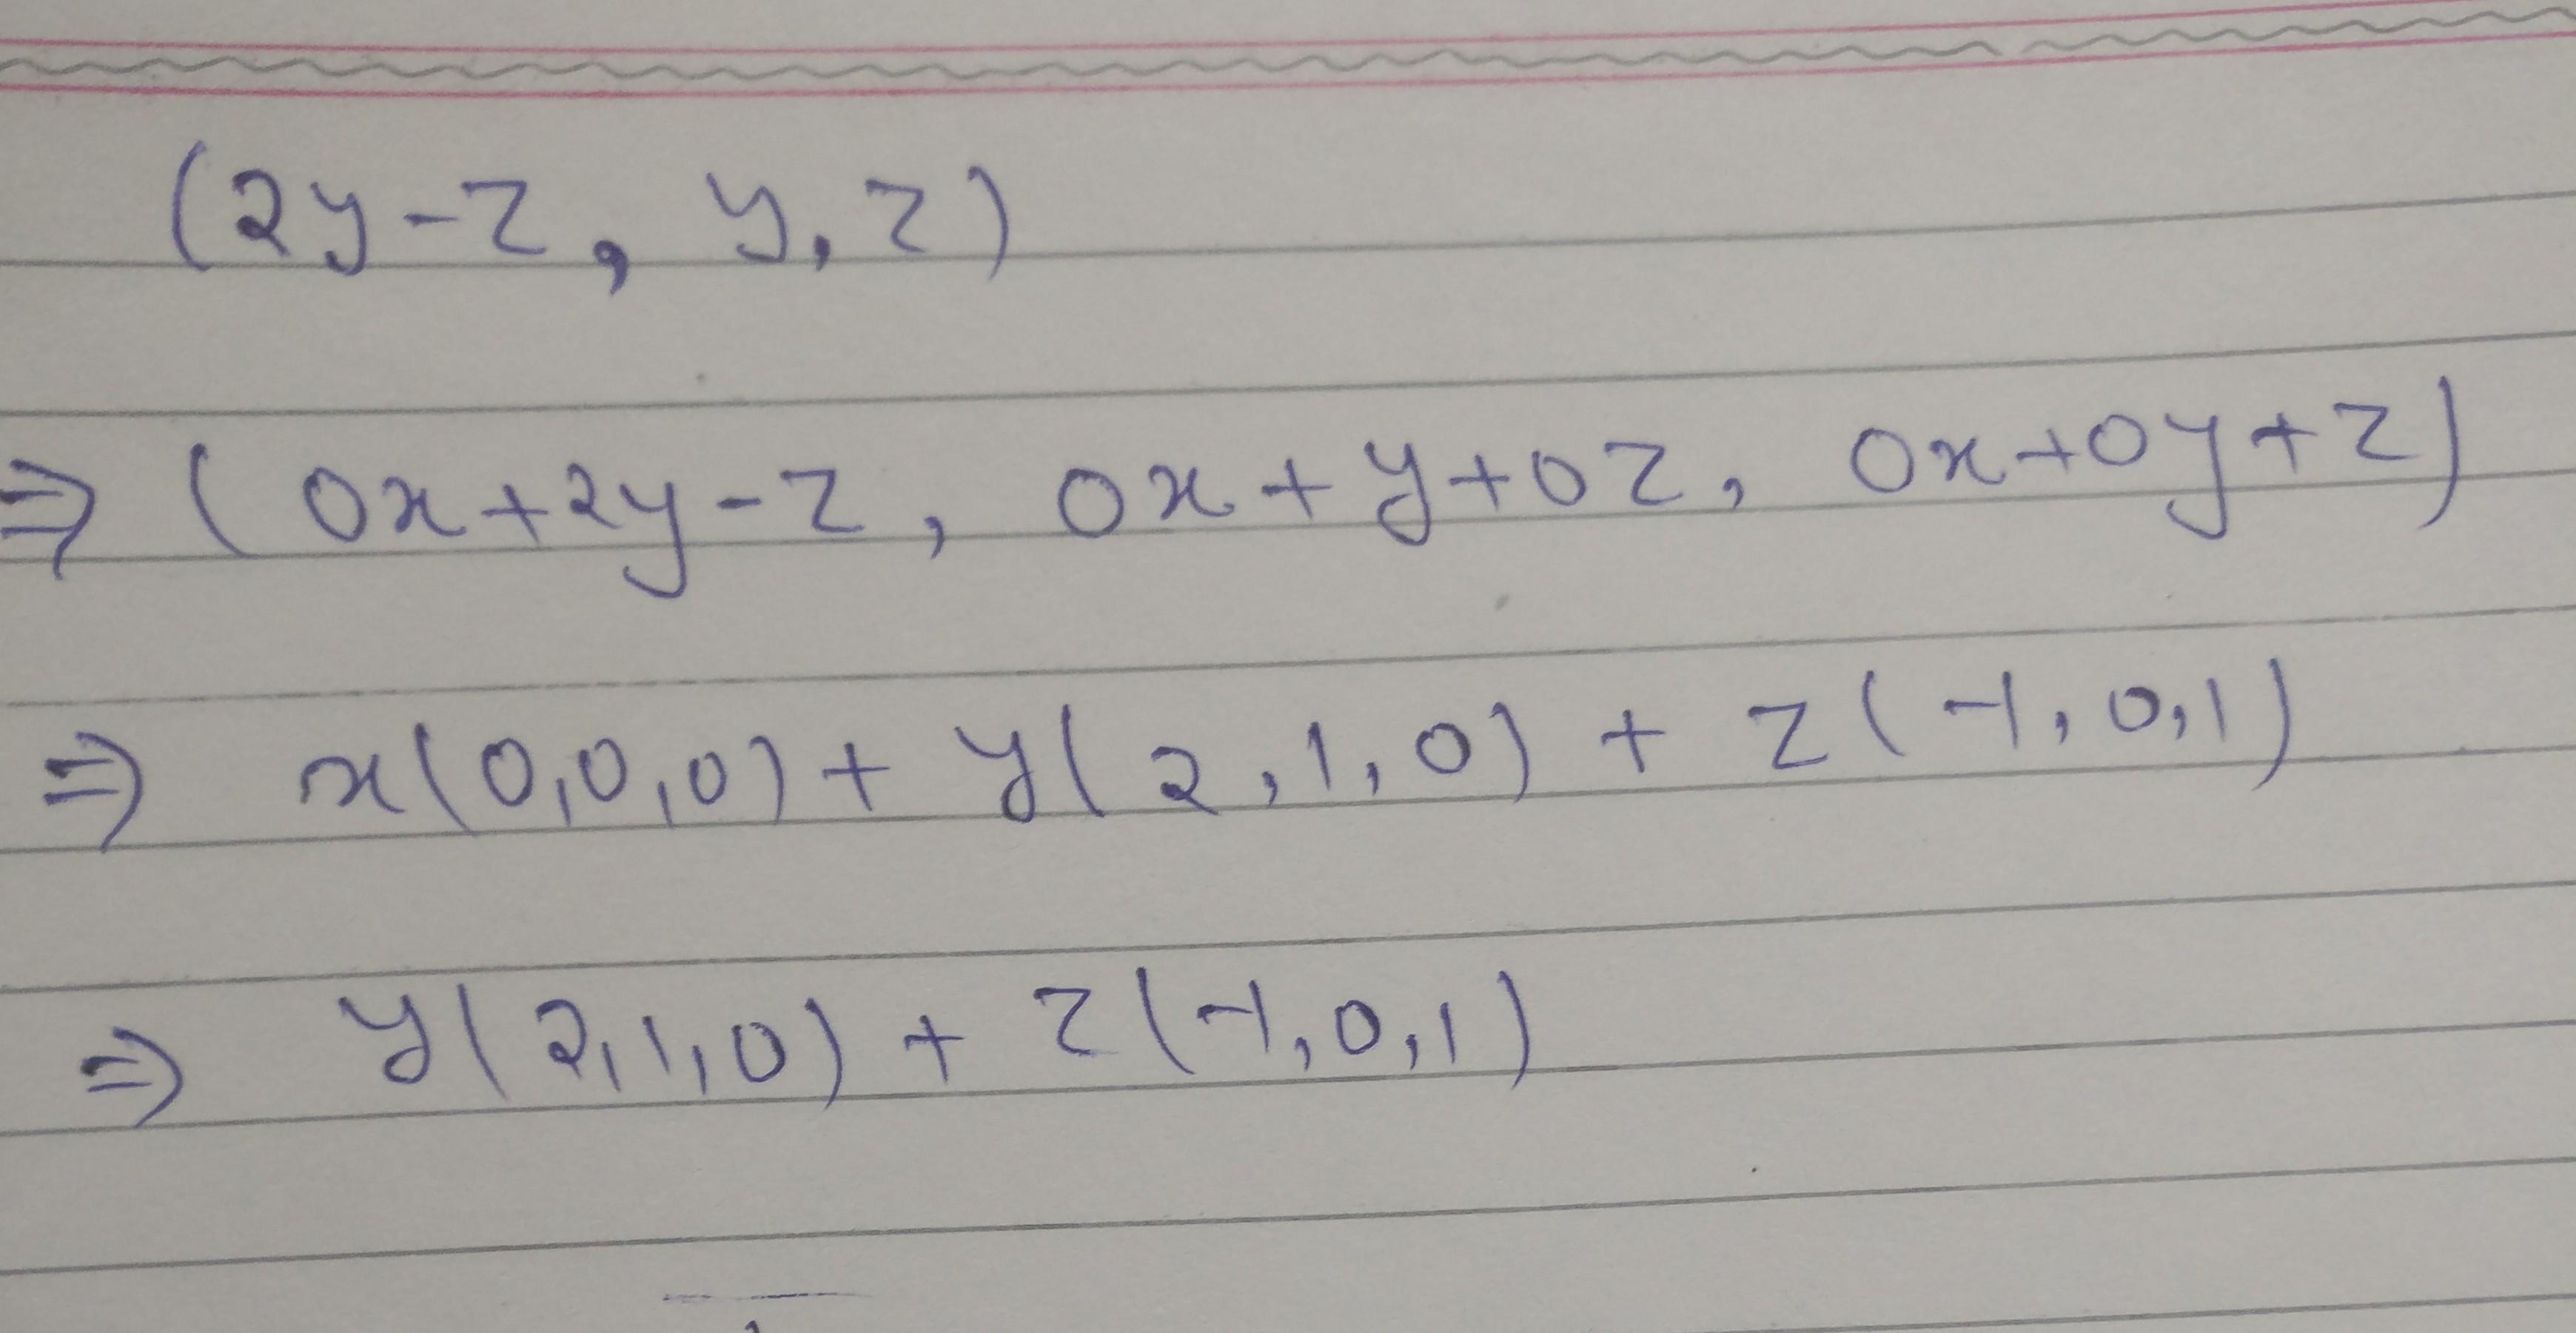 (2y-z, y, z)
⇒ (0x+2y-z, 0x+y+0z, 0x+0y+z)
⇒ x(0,0,0)+y(2,1,0)+z(-1,0,1)
⇒ y(2,1,0)+z(-1,0,1)